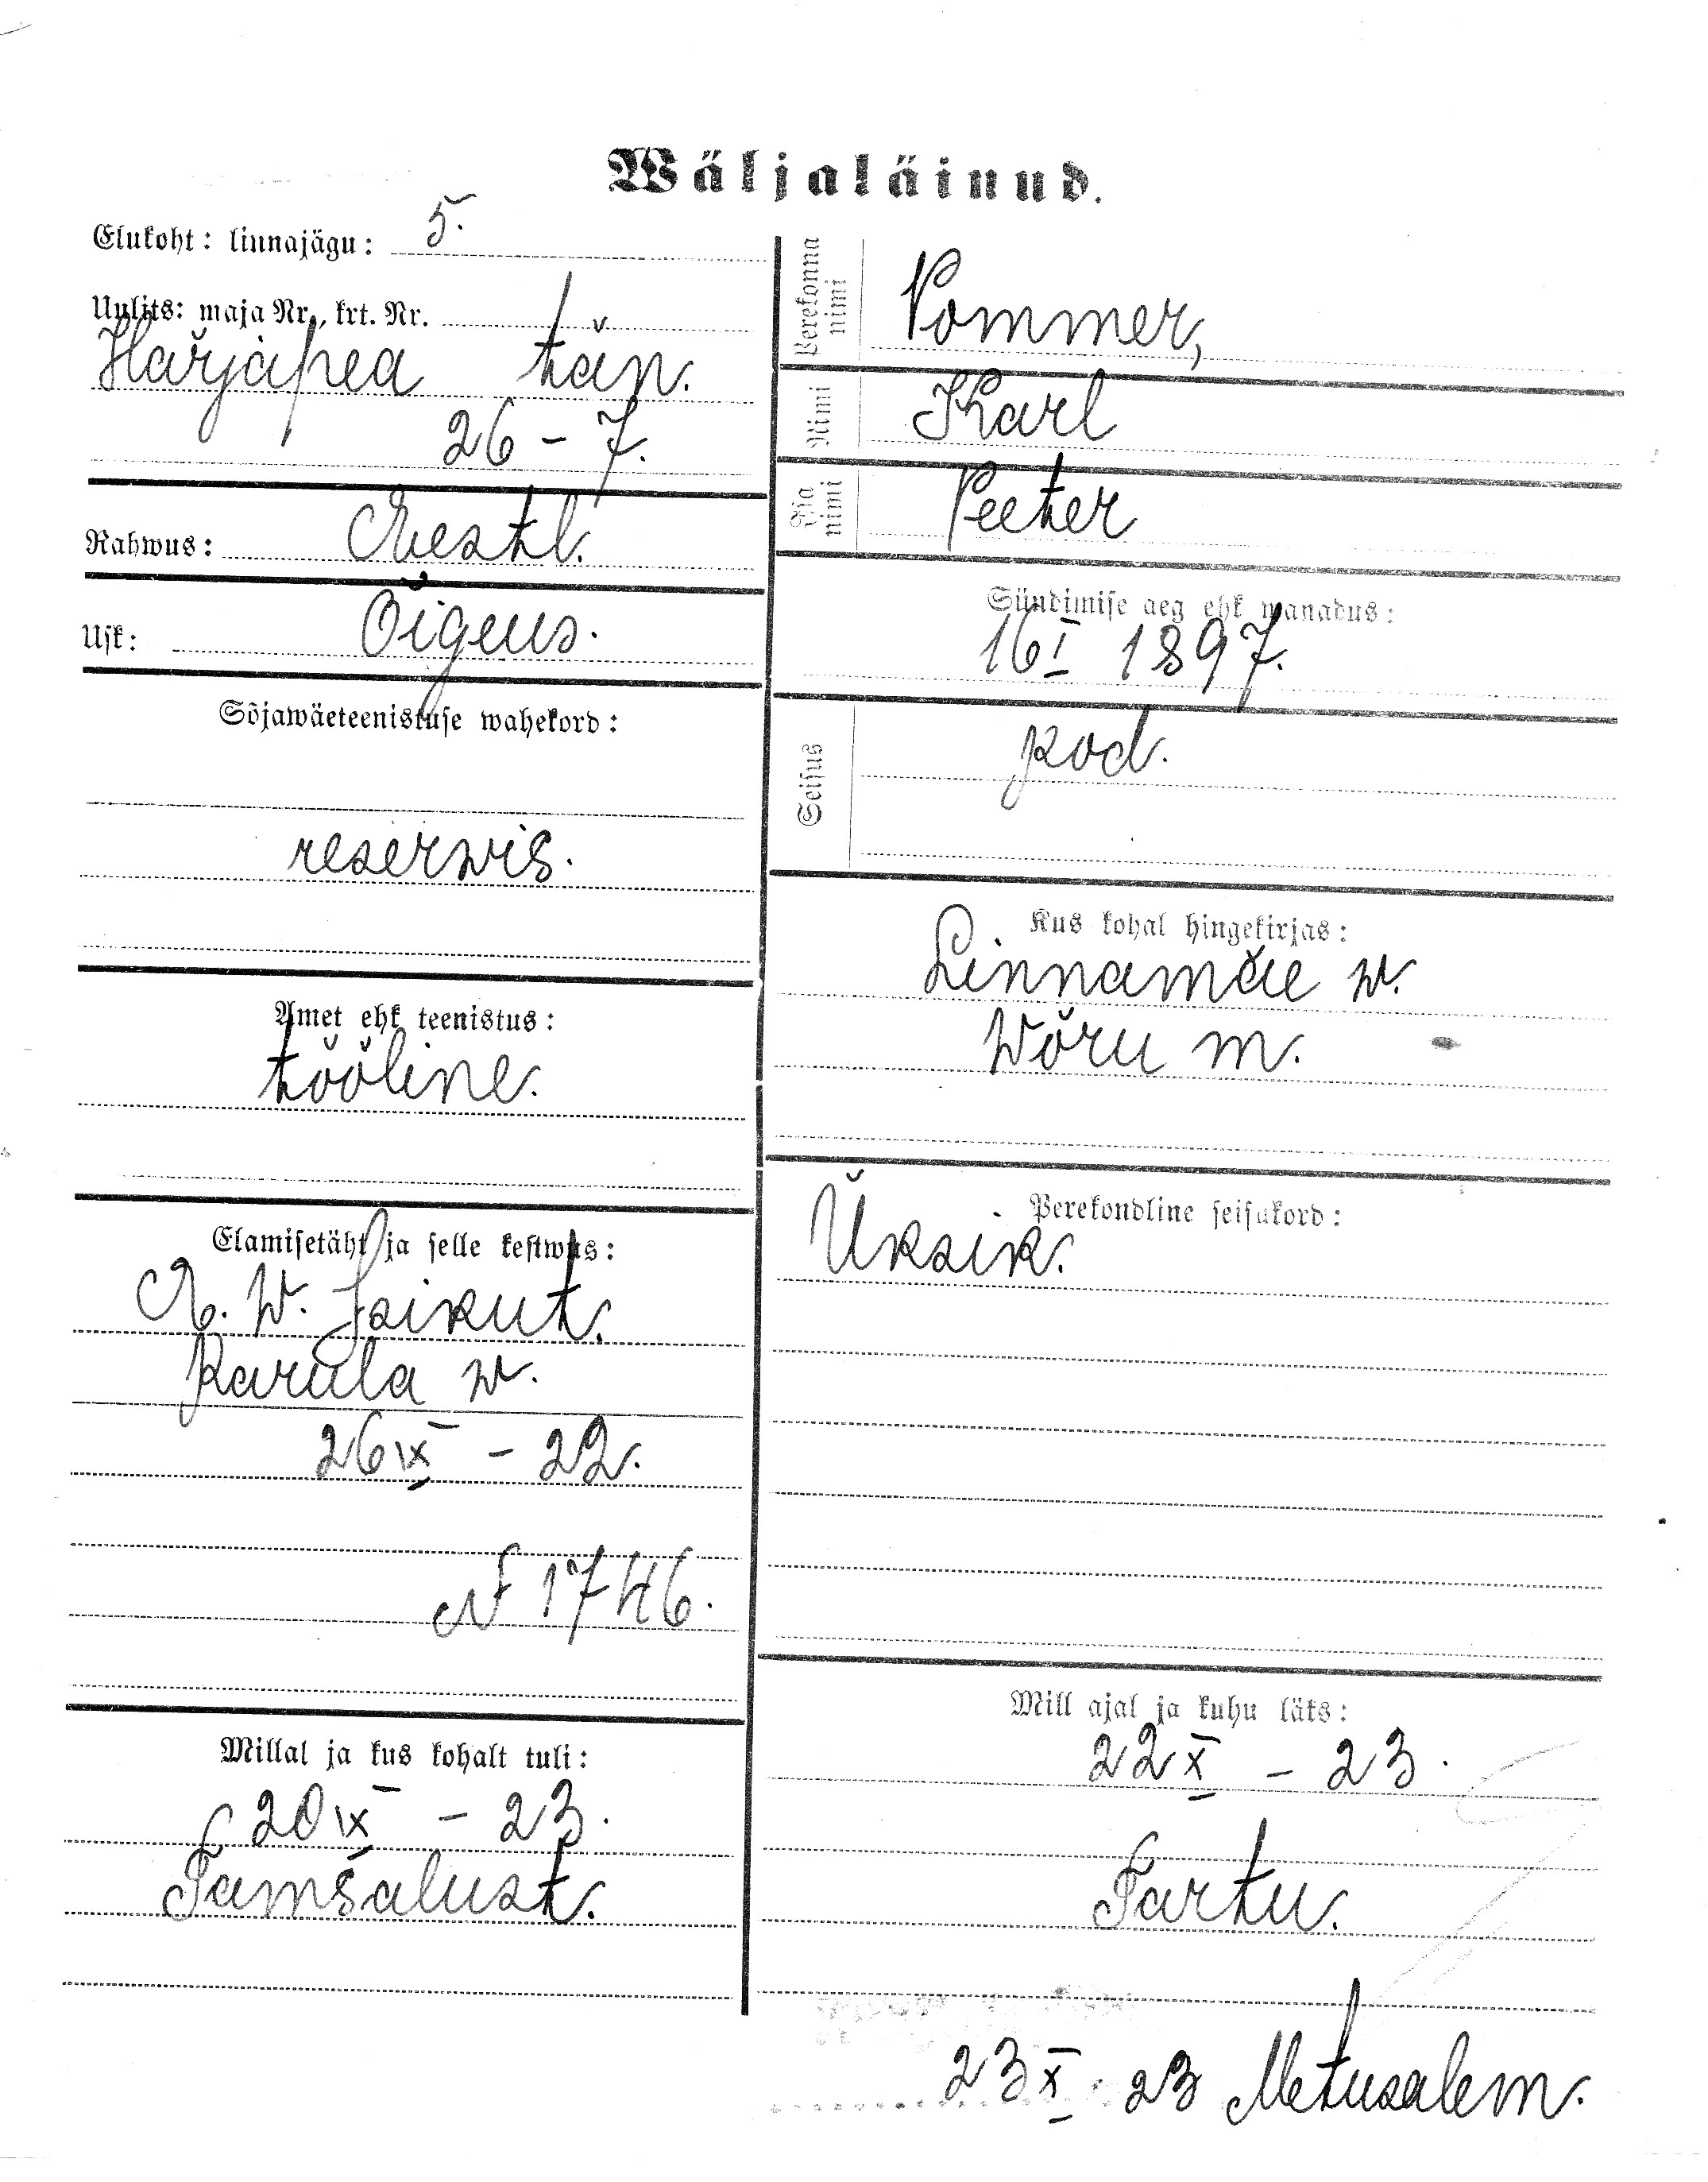 Wäljaläinud.
Elukoht: linnajägu: 5.
Uulits: maja Nr., krt. Nr.
Härjapea tän.
26 - 7.
Rahwus: Eestl.
Usk: Õigeus.
Sõjawäeteenistuse wahekord:
reserwis.
Amet ehk teenistus:
tööline.
Elamisetäht ja selle kestwus:
E. W. Isikut.
Karula w.
26 IX - 22.
N 1746.
Millal ja kus kohalt tuli:
20 IX - 23.
Tamsalust.
Perekonna nimi
Pommer,
Nimi
Karl
Isa nimi
Peeter
Sündimise aeg ehk wanadus:
16 I 1897.
Seisus
kod.
Kus kohal hingekirjas:
Linnamäe w.
Wõru m.
Perekondline seisukord:
Üksik.
Mill ajal ja kuhu läks:
22 X - 23.
Tartu.
23 X 23 Metusalem.